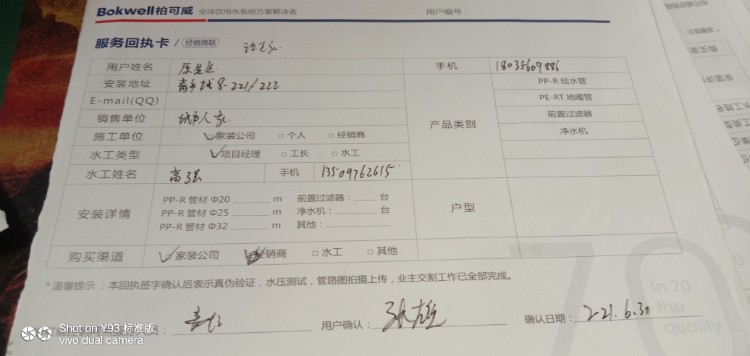 Bokwell柏可威 全球饮用水系统方案解决者 用户编号：
服务回执卡 / 经销商联
用户姓名 手机 18035609886
安装地址 8-221/222 PP-R 给水管
E-mail(QQ) PE-RT 地暖管
销售单位 城市人家 产品类别 前置过滤器
施工单位 ✓家装公司 □个人 □经销商 净水机
水工类型 ✓项目经理 □工长 □水工
水工姓名 高强 手机 13509762615
PP-R 管材 Φ20 m 前置过滤器： 台
安装详情 PP-R 管材 Φ25 m 净水机： 台 户型
PP-R 管材 Φ32 m 其他：
购买渠道 ✓家装公司 销商 □水工 □其他
*温馨提示：本回执签字确认后表示真伪验证，水压测试，管路图拍摄上传，业主交割工作已全部完成。
用户确认： 确认日期：221.6.30
70
In 70
the
quality
Shot on Y93 标准版
vivo dual camera